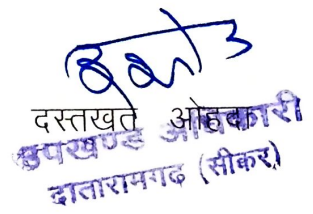 दस्तखते ओहदा
उपखण्ड अधिकारी
दातारामगढ (सीकर)